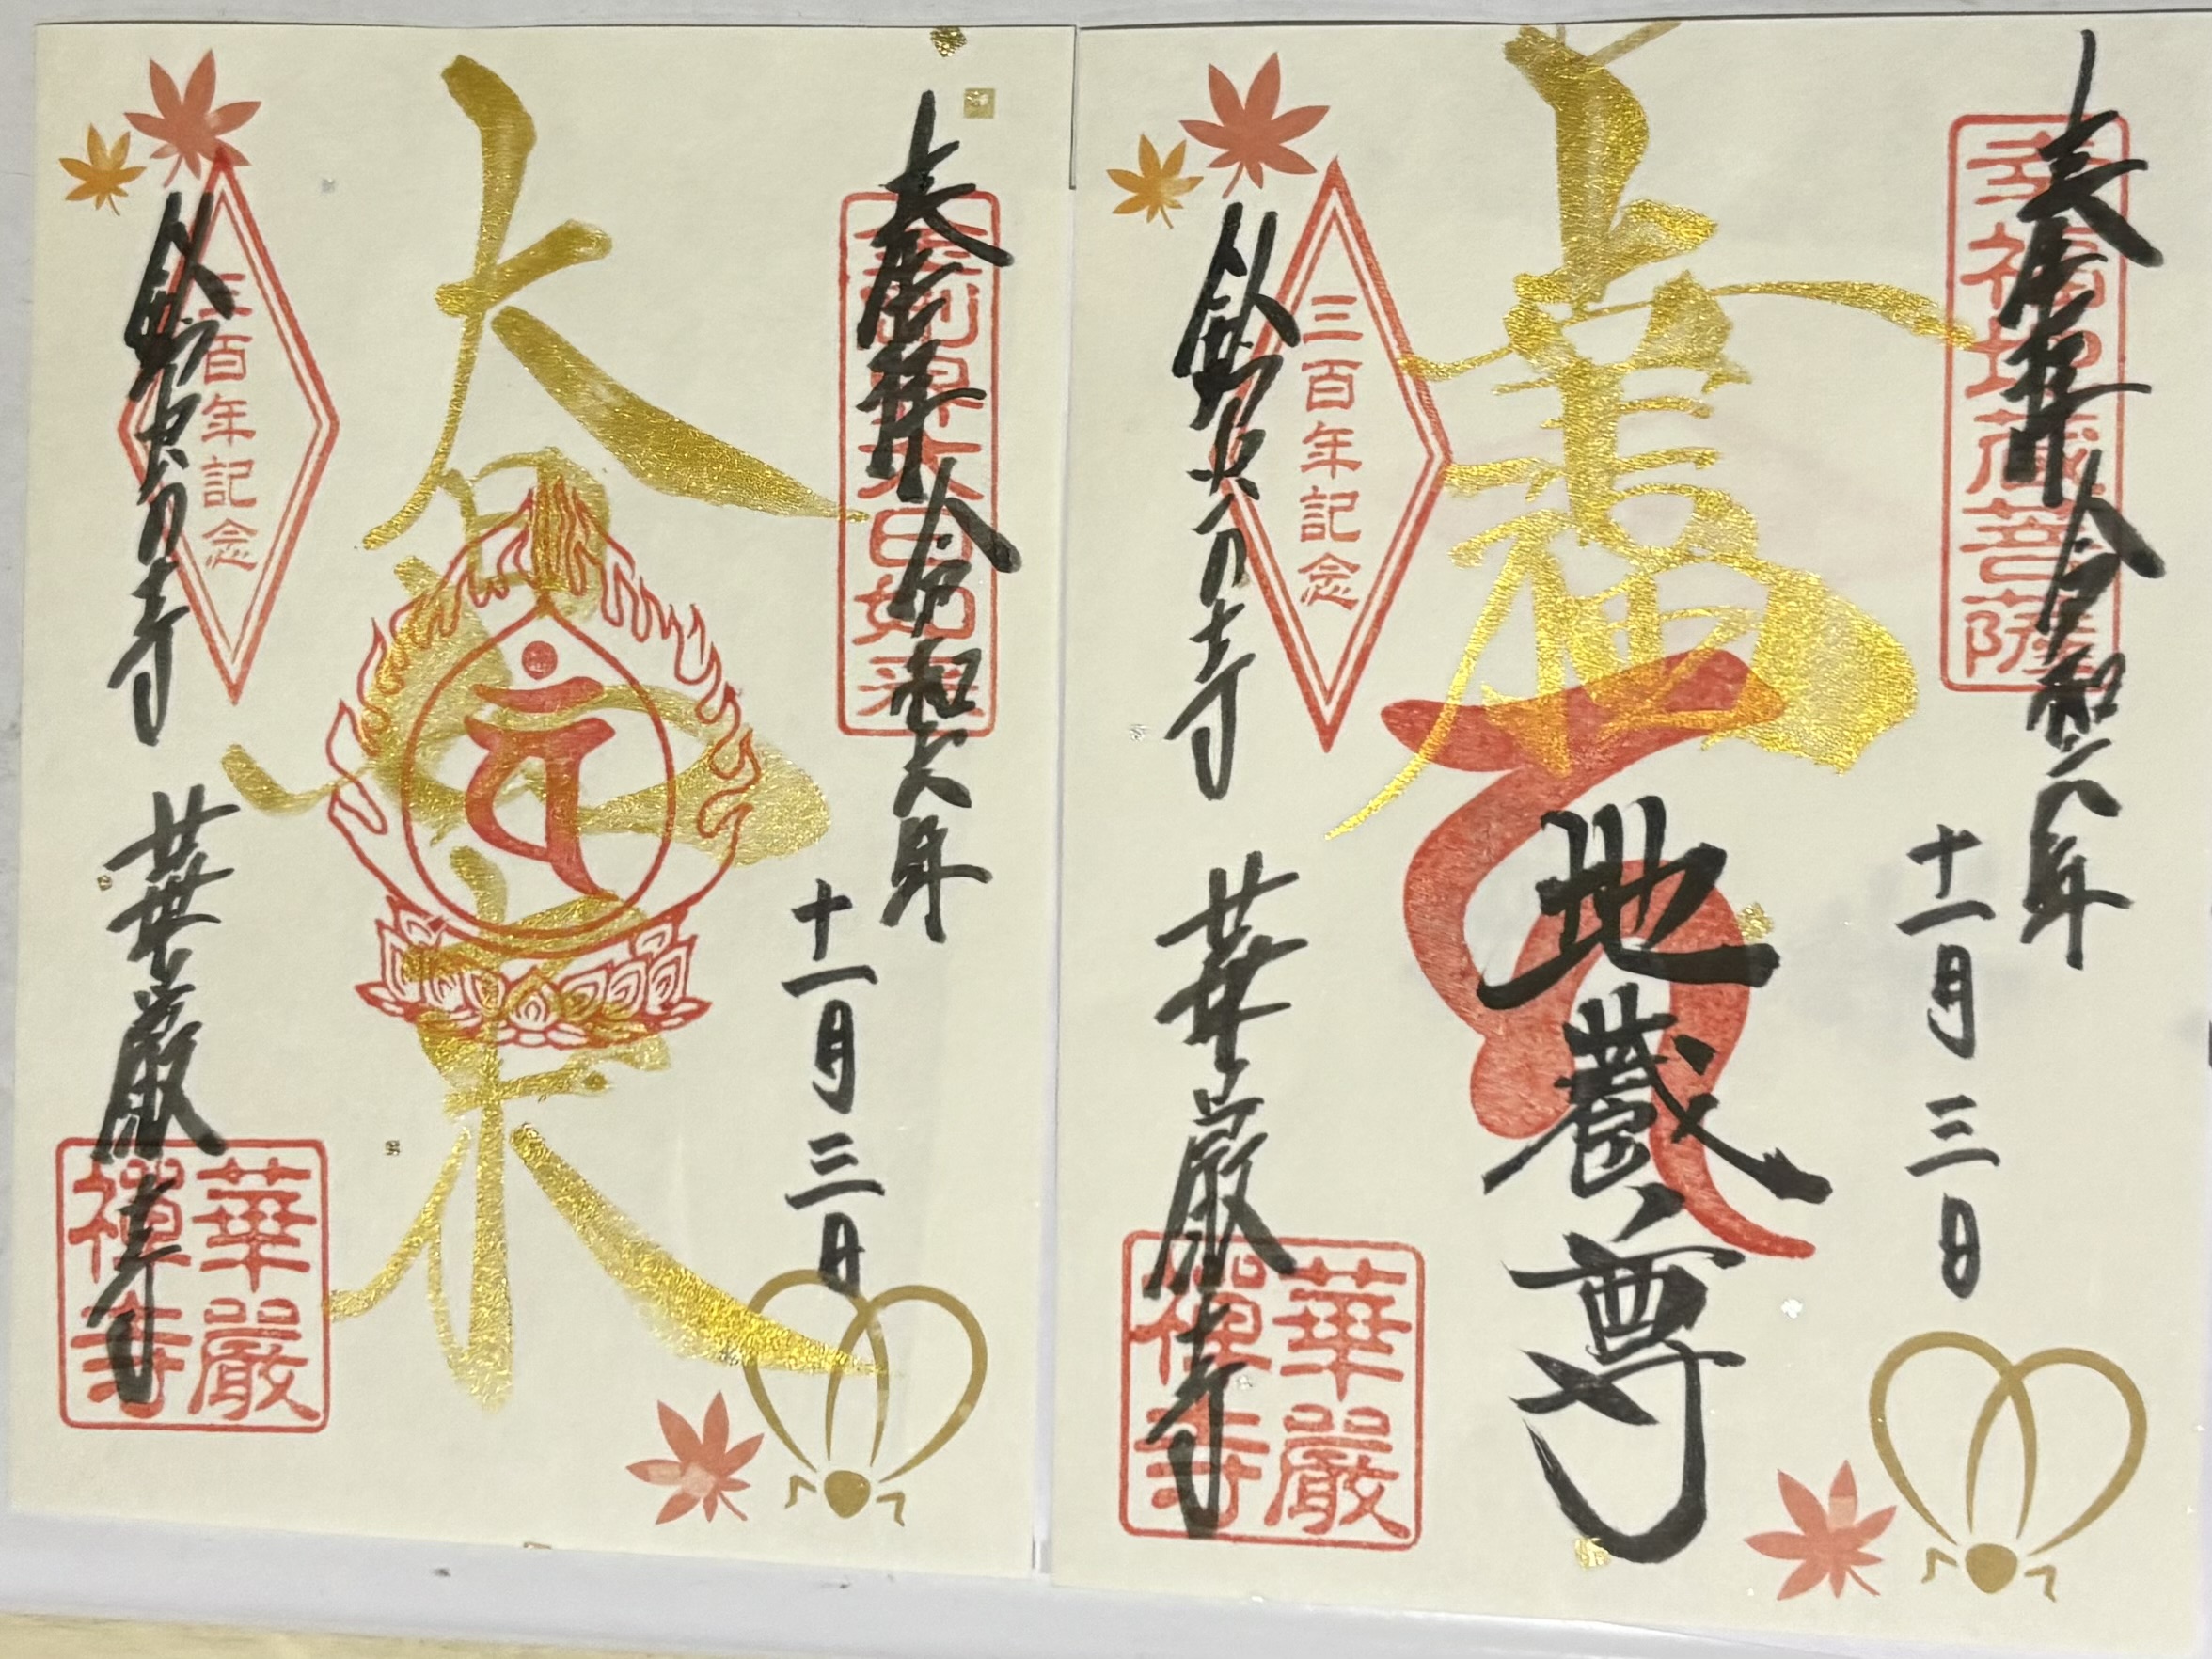 奉拝 令和六年
大日如来
十一月三日
大日如来
三百年記念
鈴虫の寺
華厳寺
華嚴禪寺
奉拝 令和六年
幸福地蔵菩薩
十一月三日
幸福
地蔵尊
三百年記念
鈴虫の寺
華厳寺
華嚴禪寺